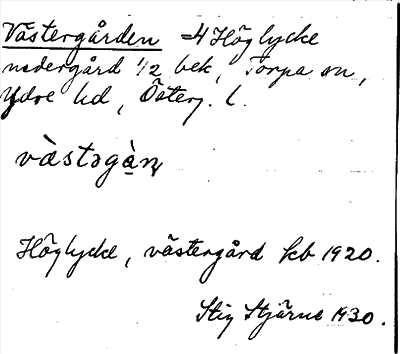 Västergården =4 Höglycke
nedergård 1/2 bek, Torpa sn,
Ydre hd, Österg. l.
vàstəgàṇ
Höglycke, västergård kb 1920.
Stig Stjärne 1930.